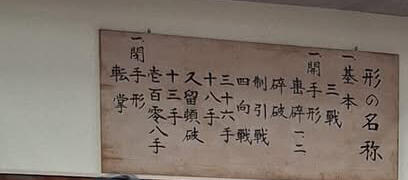 形の名称
一、基本
三戦
一、開手形
砕破
制引戦
四向戦
三十六手
十八手
久留頓破
十三手
壱百零八手
一、閉手形
転掌